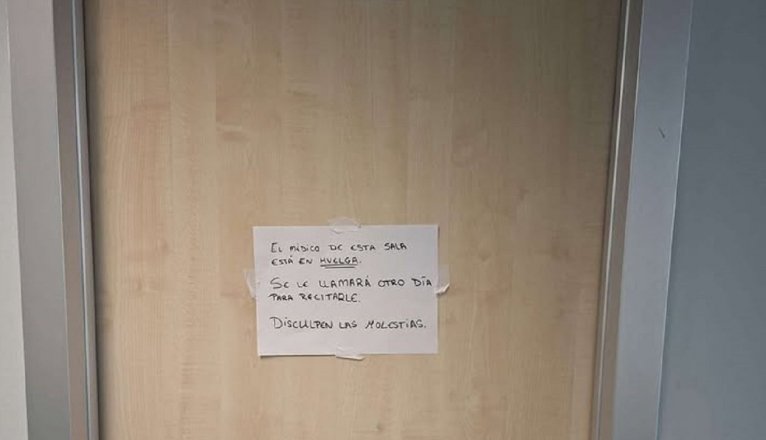 EL MÉDICO DE ESTA SALA
ESTÁ EN HUELGA.
SE LE LLAMARÁ OTRO DÍA
PARA RECITARLE.
DISCULPEN LAS MOLESTIAS.